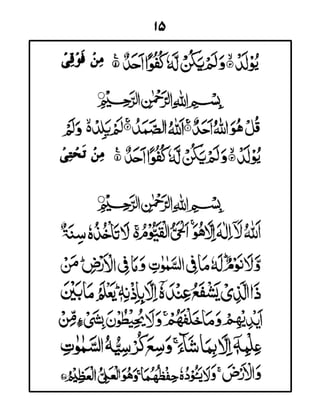 ١٥
يُوْلَدْ ۙ وَلَمْ يَكُنْ لَّهٗ كُفُوًا اَحَدٌ ۠ مِنْ فَوْقِىْ
بِسْمِ اللّٰهِ الرَّحْمٰنِ الرَّحِيْمِ ۝
قُلْ هُوَ اللّٰهُ اَحَدٌ ۚ اَللّٰهُ الصَّمَدُ ۚ لَمْ يَلِدْ ۙ وَلَمْ
يُوْلَدْ ۙ وَلَمْ يَكُنْ لَّهٗ كُفُوًا اَحَدٌ ۠ مِنْ تَحْتِىْ
بِسْمِ اللّٰهِ الرَّحْمٰنِ الرَّحِيْمِ ۝
اَللّٰهُ لَآ اِلٰهَ اِلَّا هُوَ ۚ اَلْحَىُّ الْقَيُّوْمُ ۚ لَا تَاْخُذُهٗ سِنَةٌ
وَّلَا نَوْمٌ ؕ لَهٗ مَا فِى السَّمٰوٰتِ وَمَا فِى الْاَرْضِ ؕ مَنْ
ذَا الَّذِىْ يَشْفَعُ عِنْدَهٗٓ اِلَّا بِاِذْنِهٖ ؕ يَعْلَمُ مَا بَيْنَ
اَيْدِيْهِمْ وَمَا خَلْفَهُمْ ۚ وَلَا يُحِيْطُوْنَ بِشَىْءٍ مِّنْ
عِلْمِهٖٓ اِلَّا بِمَا شَآءَ ۚ وَسِعَ كُرْسِيُّهُ السَّمٰوٰتِ
وَالْاَرْضَ ۚ وَلَا يَـُٔوْدُهٗ حِفْظُهُمَا ۚ وَهُوَ الْعَلِىُّ الْعَظِيْمُ ۝